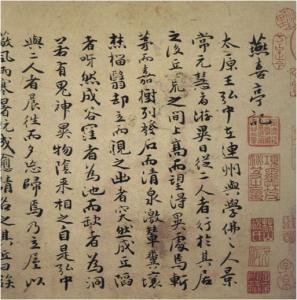 燕喜亭記
太原王弘中在連州與學佛之人景
常元慧者游異日從二人者行於其居
之後丘荒之間上高而望得異處焉斬
茅而嘉樹列發石而清泉激輦糞壤
焚椔翳却立而視之出者突然成丘陷
者呀然成谷窪者為池而缺者為洞
若有鬼神異物陰來相之自是弘中
與二人者晨往而夕忘歸焉乃立屋以
蔽風雨寒暑既成愈請名之其丘曰俟